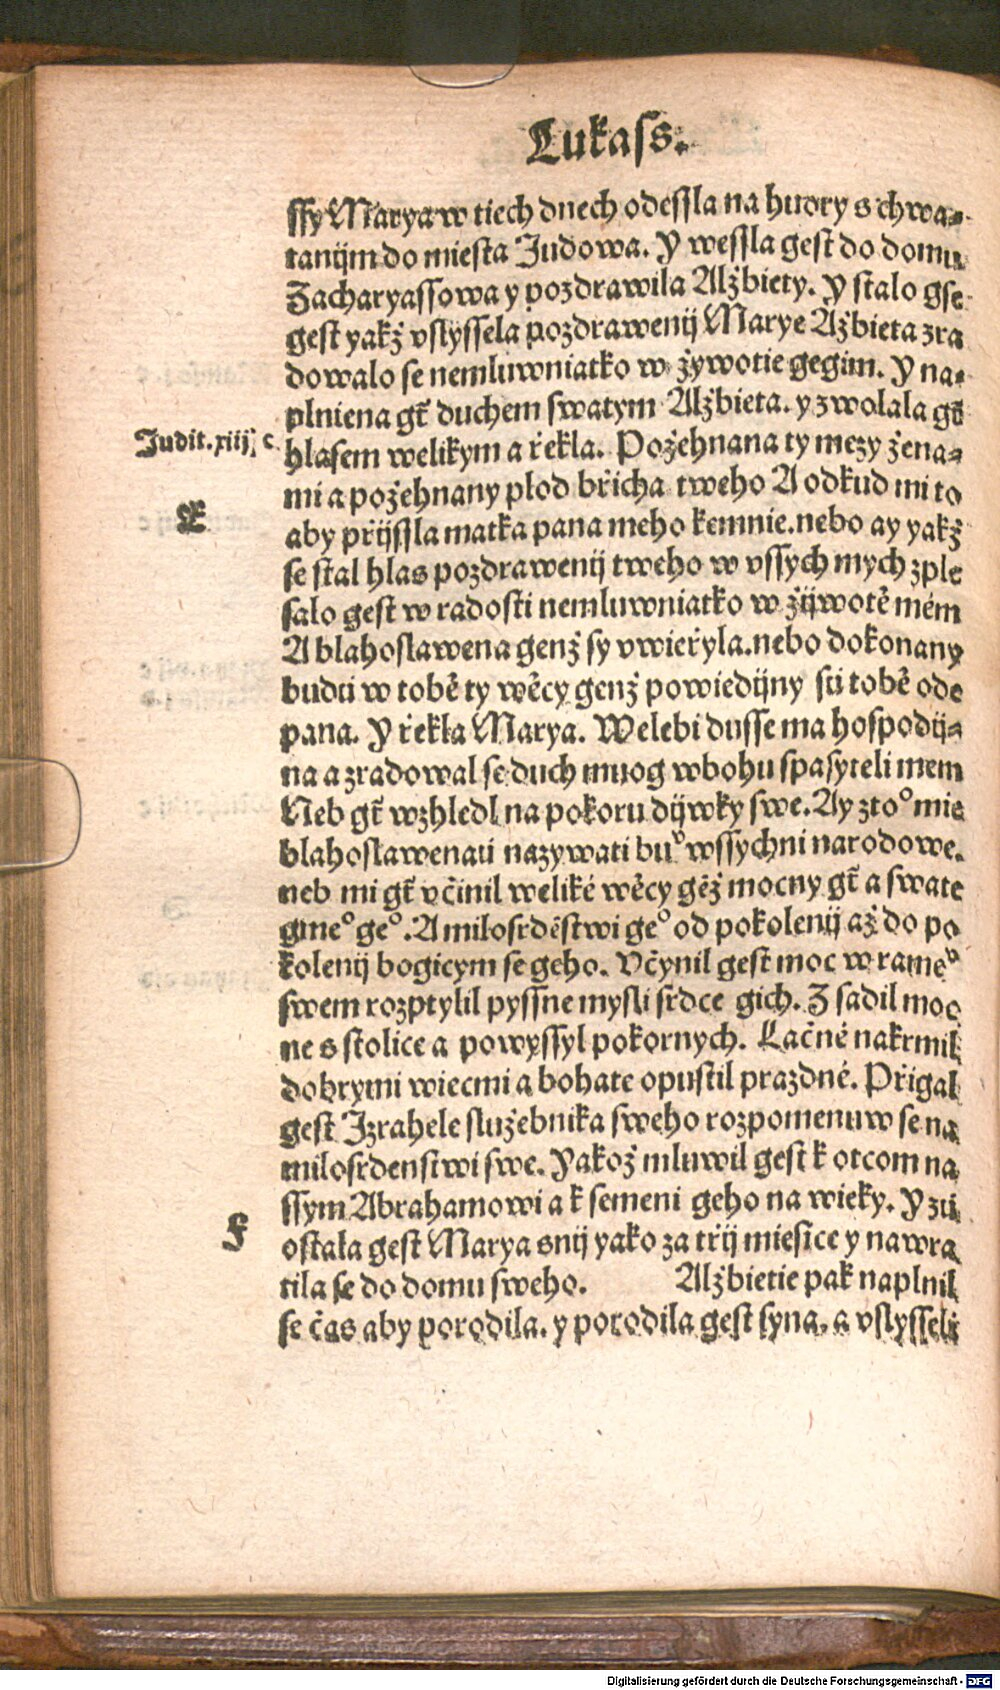 Lukass.
ssy Marya w tiech dnech odessla na huory s chwa-
tanijm do miesta Judowa. Y wessla gest do domu
Zacharyassowa y pozdrawila Alžbiety. Y stalo gse
gest yakž vslyssela pozdrawenij Marye Ažbieta zra
dowalo se nemluwniatko w žywotie gegim. Y na-
plniena gt̃ duchem swatym Alžbieta. y zwolala gt̃
Judit. xiij. c
hlasem welikym a řekla. Požehnana ty mezy žena-
mi a požehnany plod břicha tweho A odkud mi to
E
aby přijssla matka pana meho kemnie. nebo ay yakž
se stal hlas pozdrawenij tweho w vssych mych zple
salo gest w radosti nemluwniatko w žijwotě mém
A blahoslawena genž sy vwieřyla. nebo dokonany
budu w tobě ty wěcy genž powiedijny su tobě ode
pana. Y řekla Marya. Welebi dusse ma hospodij-
na a zradowal se duch muog w bohu spasyteli mem
Neb gt̃ wzhledl na pokoru dijwky swe. Ay ztoº mie
blahoslawenau nazywati buᵛ wssychni narodowe.
neb mi gt̃ včinil weliké wěcy gēž mocny gt̃ a swate
gmeº geº. A milosrdēstwi geº od pokolenij až do po
kolenij bogicym se geho. Včynil gest moc w rameᵛ
swem rozptylil pyssne mysli srdce gich. Z sadil moc
ne s stolice a powyssyl pokornych. Lačné nakrmil
dobrymi wiecmi a bohate opustil prazdné. Přigal
gest Izrahele služebnika sweho rozpomenuw se na
milosrdenstwi swe. Yakož mluwil gest k otcom na
ssym Abrahamowi a k semeni geho na wieky. Y zu
F
ostala gest Marya snij yako za třij miesice y nawra
tila se do domu sweho. Alžbietie pak naplnil
se čas aby porodila. y porodila gest syna, a vslysseli
Digitalisierung gefördert durch die Deutsche Forschungsgemeinschaft - DFG